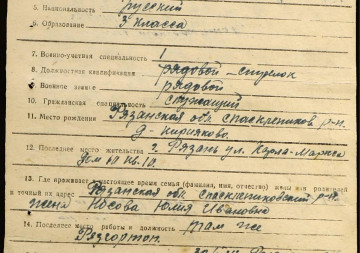 5. Национальность русский
6. Образование 3 класса
7. Военно-учетная специальность 1
8. Должностная квалификация рядовой-стрелок
9. Военное звание рядовой
10. Гражданская специальность служащий
11. Место рождения Рязанская обл. Спасклепиков. р-н.
д. Кирияково.
12. Последнее место жительства г. Рязань ул. Карла-Маркса
дом 10 кв. 10.
13. Где проживает в настоящее время семья (фамилия, имя, отчество) жены или родителей
и точный их адрес Рязанская обл. Спасклепиковский р-н
жена Носова Юлия Ивановна
14. Последнее место работы и должность Там же